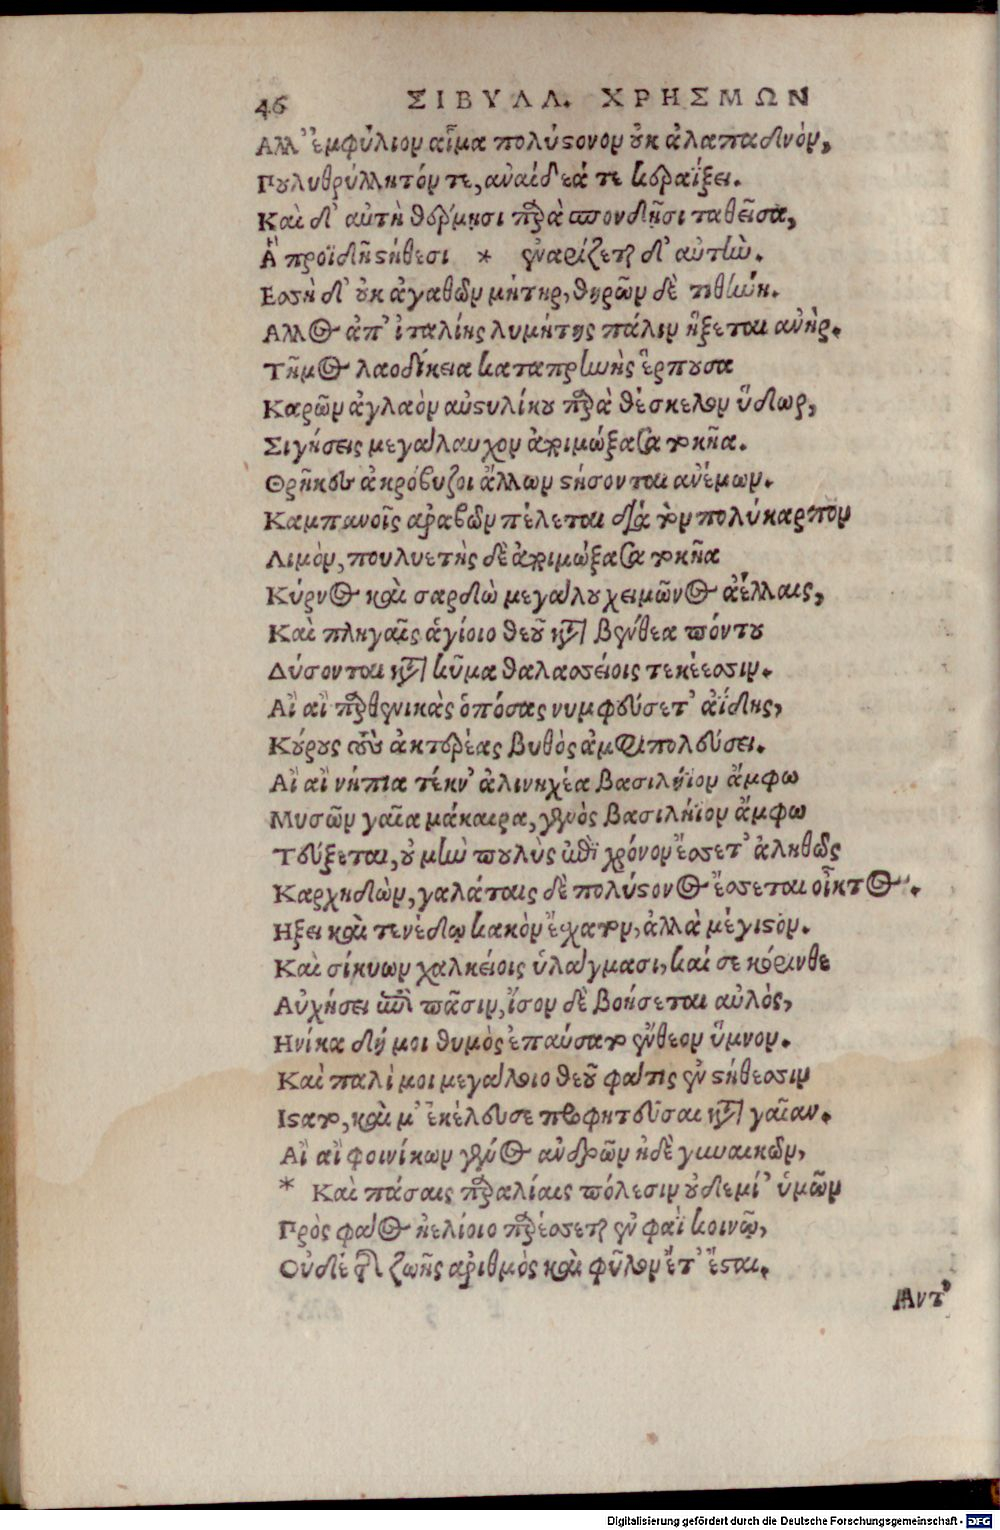 46 ΣΙΒΥΛΛ. ΧΡΗΣΜΩΝ
Αλλ' ἐμφύλιον αἷμα πολύστονον οὐκ ἀλαπαδνὸν,
Πουλυθρύλλητόν τε, ἀναιδέα τε κεραΐξει.
Καὶ δ' αὐτὴ θερμῇσι παρὰ σπονδῇσι ταθεῖσα,
Ἃ προϊδῇ στήθεσι * ἐναρίζεται δ' αὐτὼ.
Εσση δ' οὐκ ἀγαθῶν μήτηρ, θηρῶν δὲ τιθήνη.
Αλλος ἀπ' ἰταλίης λυμήτης πάλιν ἥξεται ἀνὴρ.
Τῆμος λαοδίκεια καταπρηνὴς ἔρπουσα
Καρῶν ἀγλαὸν ἄστυ λύκου παρὰ θέσκελον ὕδωρ,
Σιγήσεις μεγάλαυχον ἀποιμώξασα τοκῆα.
Θρῆκες ἀκρόβυζοι ἄλλων στήσονται ἀνέμων.
Καμπανοῖς ἄραβων πέλεται διὰ τὸν πολύκαρπον
Λιμὸν, πουλυετὴς δὲ ἀποιμώξασα τοκῆα
Κύρνος καὶ σαρδὼ μεγάλου χειμῶνος ἀέλλαις,
Καὶ πληγαῖς ἁγίοιο θεοῦ κατὰ βένθεα πόντου
Δύσονται κατὰ κῦμα θαλασσείοις τεκέεσσιν.
Αἲ αἲ παρθενικὰς ὁπόσας νυμφεύσετ' ἀΐδης,
Κούρους σὺν ἀκτερέας βυθὸς ἀμφιπολεύσει.
Αἲ αἲ νήπια τέκν' ἁλινηχέα βασιλήϊον ἄμφω
Μυσῶν γαῖα μάκαιρα, γένος βασιλήϊον ἄμφω
Τεύξεται, οὐ μὴν πουλὺς ἐπὶ χρόνον ἔσσετ' ἀληθῶς
Καρχηδὼν, γαλάταις δὲ πολύστονος ἔσσεται οἶκτος.
Ηξει καὶ τενέδῳ κακὸν ἔσχατον, ἀλλὰ μέγιστον.
Καὶ σίκυων χαλκείοις ὑλάγμασι, καί σε κόρινθε
Αὐχήσει ἐπὶ πᾶσιν, ἴσον δὲ βοήσεται αὐλὸς,
Ηνίκα δή μοι θυμὸς ἐπαύσατο ἔνθεον ὕμνον.
Καὶ πάλι μοι μεγάλοιο θεοῦ φάτις ἐν στήθεσσιν
Ιστατο, καὶ μ' ἐκέλευσε προφητεῦσαι κατὰ γαῖαν.
Αἲ αἲ φοινίκων γένος ἀνδρῶν ἠδὲ γυναικῶν,
* Καὶ πάσαις παραλίαις πόλεσιν οὐδεμί' ὑμῶν
Πρὸς φάος ἠελίοιο παρέσσεται ἐν φάϊ κοινῷ,
Οὐδέ τι ζωῆς ἀριθμὸς καὶ φῦλον ἔτ' ἔσται.
Αντ'
Digitalisierung gefördert durch die Deutsche Forschungsgemeinschaft - DFG